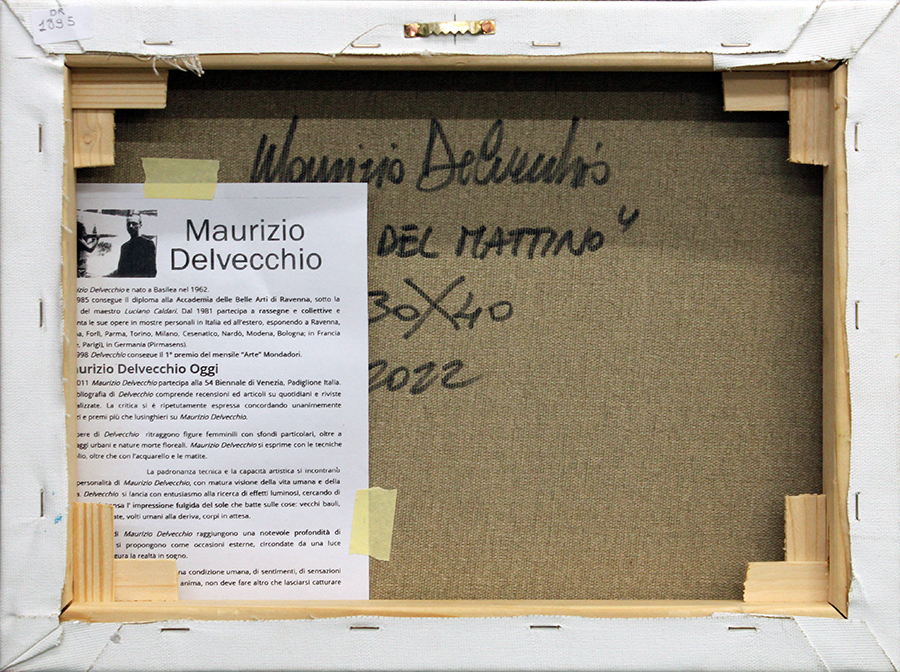 DR
1895
Maurizio Delvecchio
DEL MATTINO"
30X40
2022
Maurizio
Delvecchio
izio Delvecchio e nato a Basilea nel 1962.
985 consegue il diploma alla Accademia delle Belle Arti di Ravenna, sotto la
del maestro Luciano Caldari. Dal 1981 partecipa a rassegne e collettive e
nta le sue opere in mostre personali in Italia ed all'estero, esponendo a Ravenna,
na, Forlì, Parma, Torino, Milano, Cesenatico, Nardò, Modena, Bologna; in Francia
, Parigi), in Germania (Pirmasens).
998 Delvecchio consegue il 1° premio del mensile "Arte" Mondadori.
urizio Delvecchio Oggi
011 Maurizio Delvecchio partecipa alla 54 Biennale di Venezia, Padiglione Italia.
bliografia di Delvecchio comprende recensioni ed articoli su quotidiani e riviste
alizzate. La critica si è ripetutamente espressa concordando unanimemente
zi e premi più che lusinghieri su Maurizio Delvecchio.
pere di Delvecchio ritraggono figure femminili con sfondi particolari, oltre a
aggi urbani e nature morte floreali. Maurizio Delvecchio si esprime con le tecniche
lio, oltre che con l'acquarello e le matite.
La padronanza tecnica e la capacità artistica si incontranù
personalità di Maurizio Delvecchio, con matura visione della vita umana e della
a. Delvecchio si lancia con entusiasmo alla ricerca di effetti luminosi, cercando di
nsa l' impressione fulgida del sole che batte sulle cose: vecchi bauli,
ate, volti umani alla deriva, corpi in attesa.
di Maurizio Delvecchio raggiungono una notevole profondità di
si propongono come occasioni esterne, circondate da una luce
gura la realtà in sogno.
na condizione umana, di sentimenti, di sensazioni
anima, non deve fare altro che lasciarsi catturare